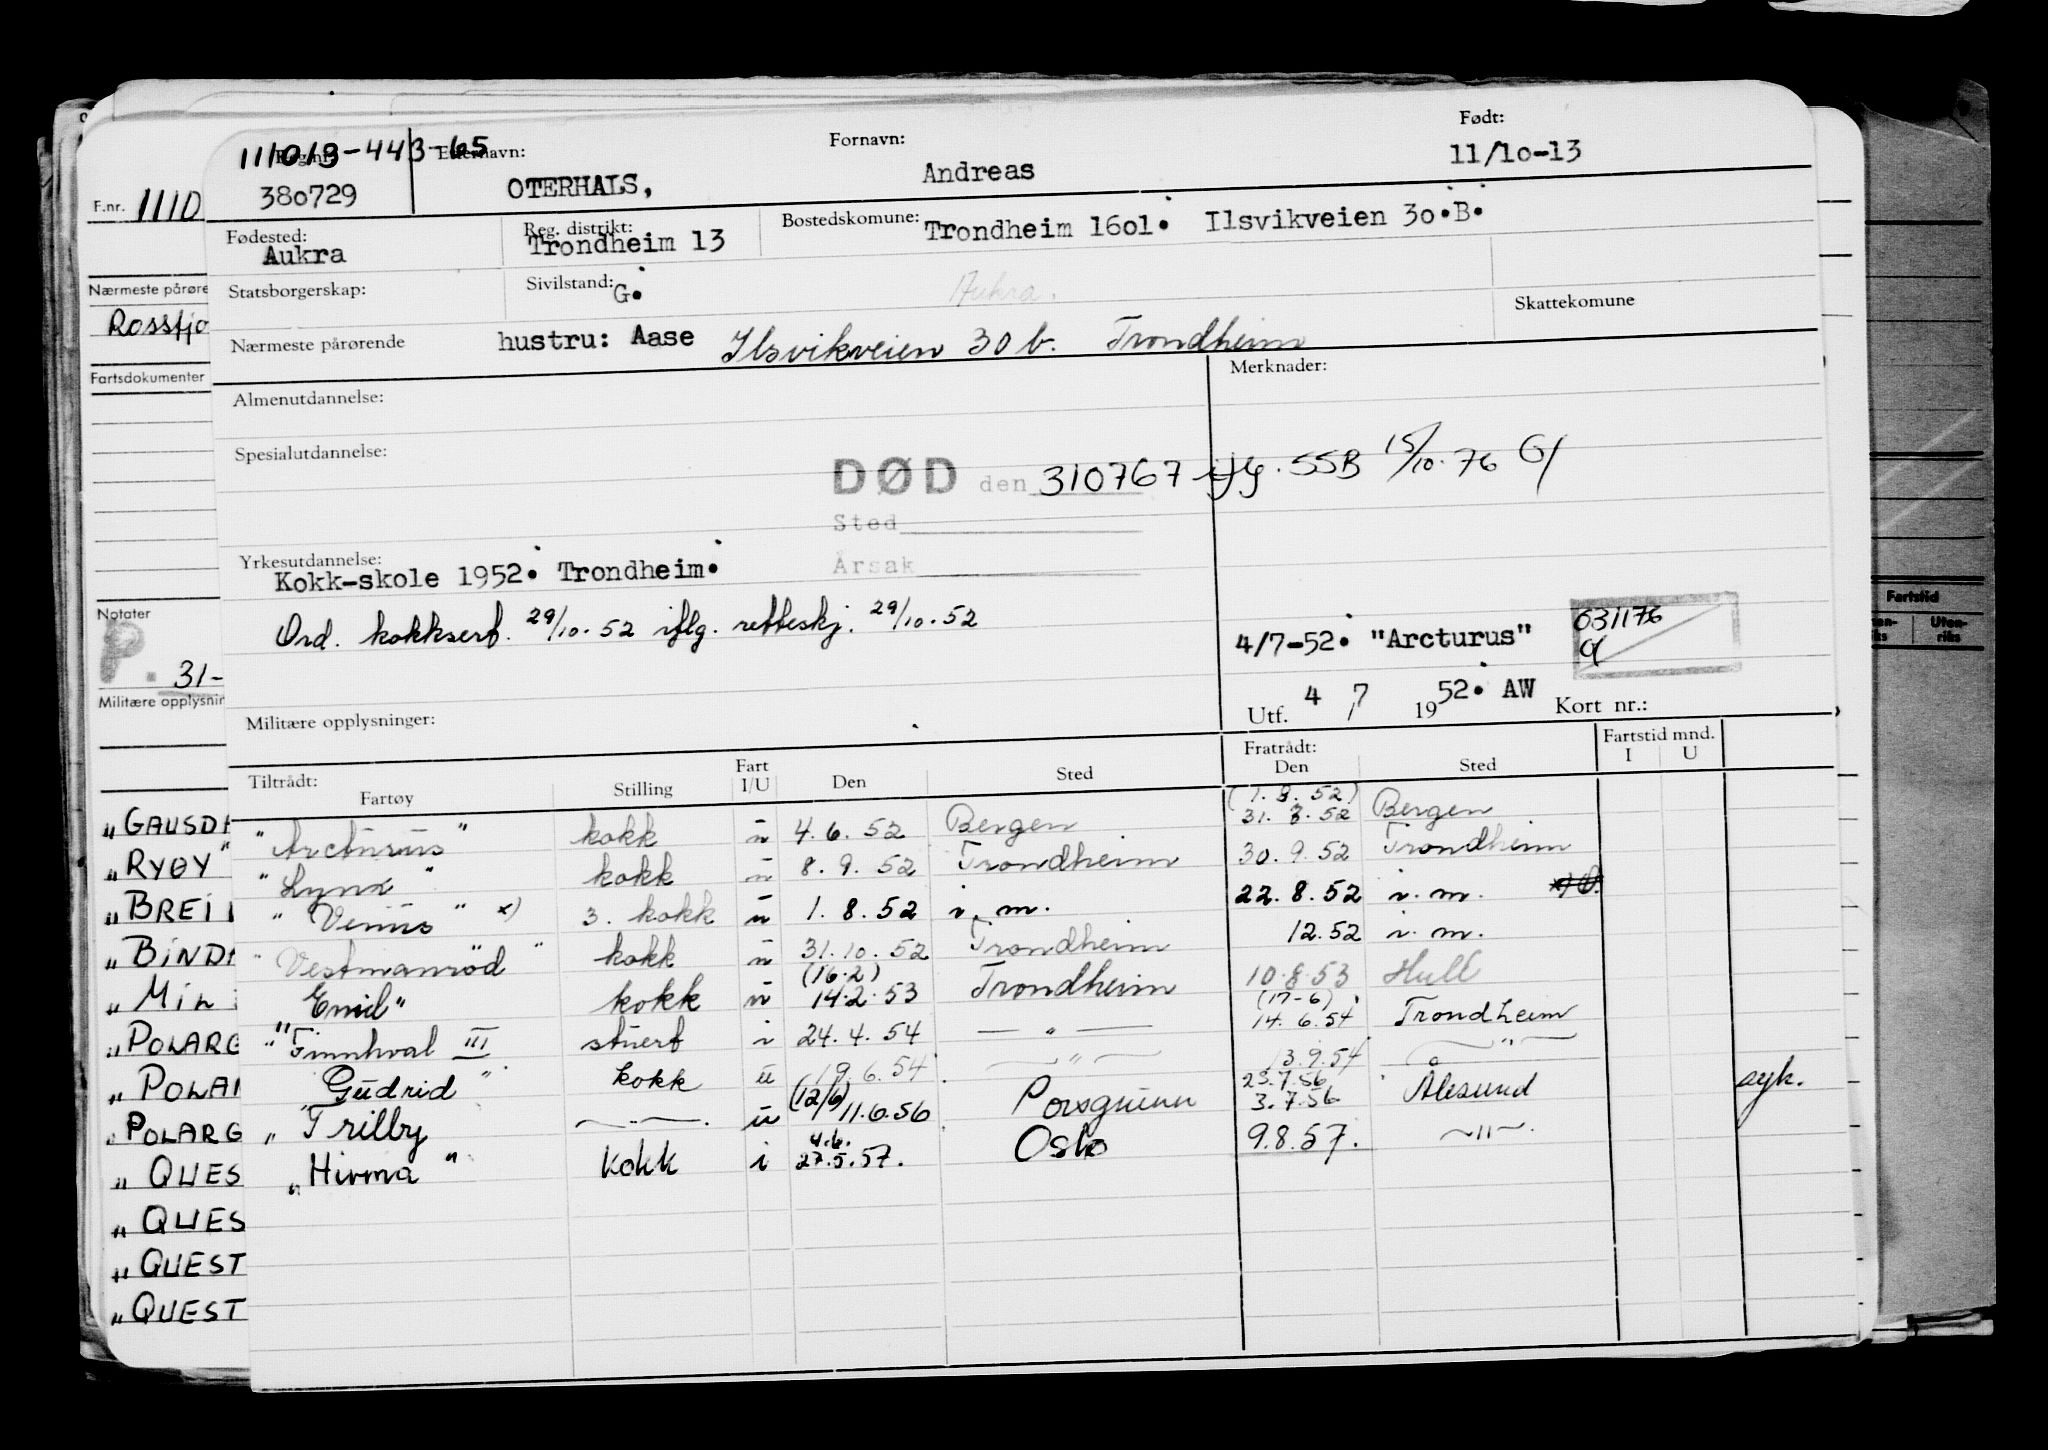 111013-443-65
Reg.nr. Etternavn: Fornavn: Født:
380729 OTERHALS, Andreas 11/10-13
F.nr. 1110
Fødested: Reg. distrikt: Bostedskomune:
Aukra Trondheim 13 Trondheim 1601. Ilsvikveien 30.B.
Statsborgerskap: Sivilstand: G. Aukra. Skattekomune
Nærmeste pårøre
Rossfjo
Nærmeste pårørende hustru: Aase Ilsvikveien 30 b. Trondheim
Fartsdokumenter
Almenutdannelse: Merknader:
Spesialutdannelse:
DØD den 310767 iflg. SSB 15/10.76 G/
Sted
Årsak
Yrkesutdannelse:
Kokk-skole 1952. Trondheim.
Notater
P. 31-
Ord. kokksert. 29/10.52 iflg. retteskj. 29/10.52
4/7-52. "Arcturus" 031176
Utf. 4 / 7 1952. AW Kort nr.:
Militære opplysnin
Militære opplysninger:
Tiltrådt: Fratrådt: Fartstid mnd.
Fartøy Stilling Fart I/U Den Sted Den Sted I U
"Arcturus" kokk u 4.6.52 Bergen (1.8.52) 31.8.52 Bergen
"Lynx" kokk u 8.9.52 Trondheim 30.9.52 Trondheim
"Venus" x) 3. kokk u 1.8.52 i.m. 22.8.52 i.m.
"Vestmanrød" kokk u 31.10.52 Trondheim 12.52 i.m.
"Emil" kokk u (16.2) 14.2.53 Trondheim 10.8.53 Hull
"Finnhval III" stuert i 24.4.54 — " — (17-6) 14.6.54 Trondheim
"Gudrid" kokk u 19.6.54 — " — 13.9.54 — " —
"Trilby —.— u (12/6) 11.6.56 Porsgrunn 23.7.56 3.7.56 Ålesund syk.
"Hirma" kokk i 4.6. 27.5.57. Oslo 9.8.57. —"—
"GAUSD
"RYGY"
"BREI
"BIND
"MIL
"POLARG
"POLA
POLARG
"QUES
"QUES
"QUEST
"QUEST
Fartstid
Uten-
riks